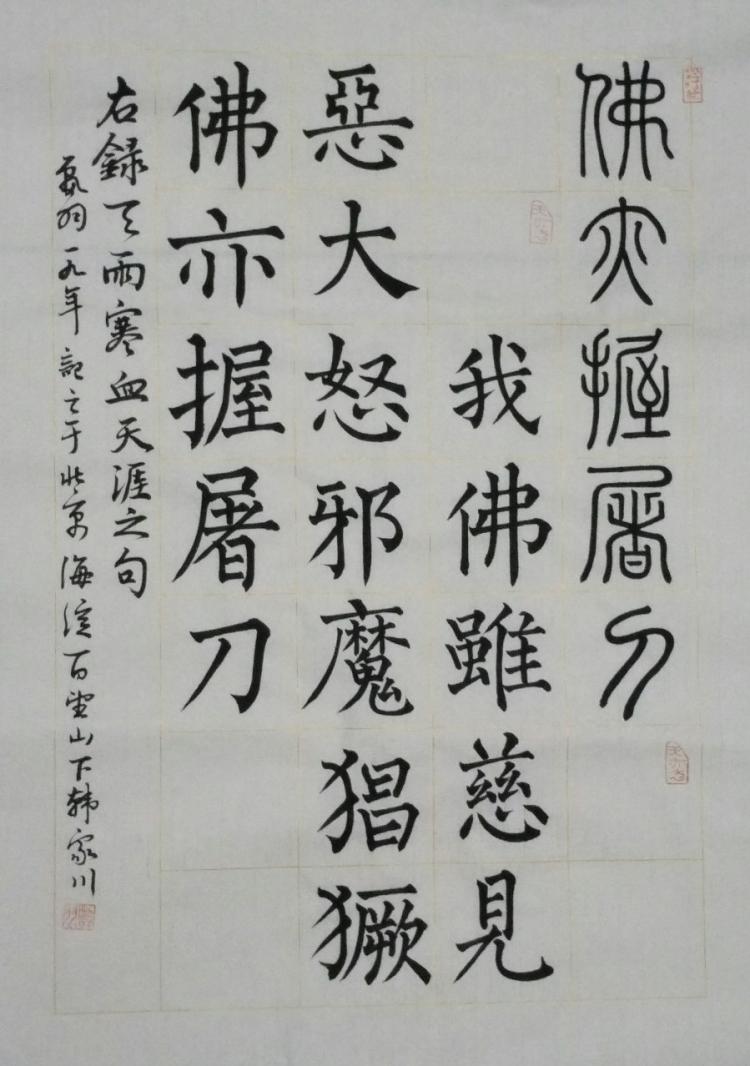 佛亦握屠刀
我佛雖慈見
惡大怒邪魔猖獗
佛亦握屠刀
右錄天雨寒血天涯之句
羽一九年記之于北京海淀百望山下韩家川